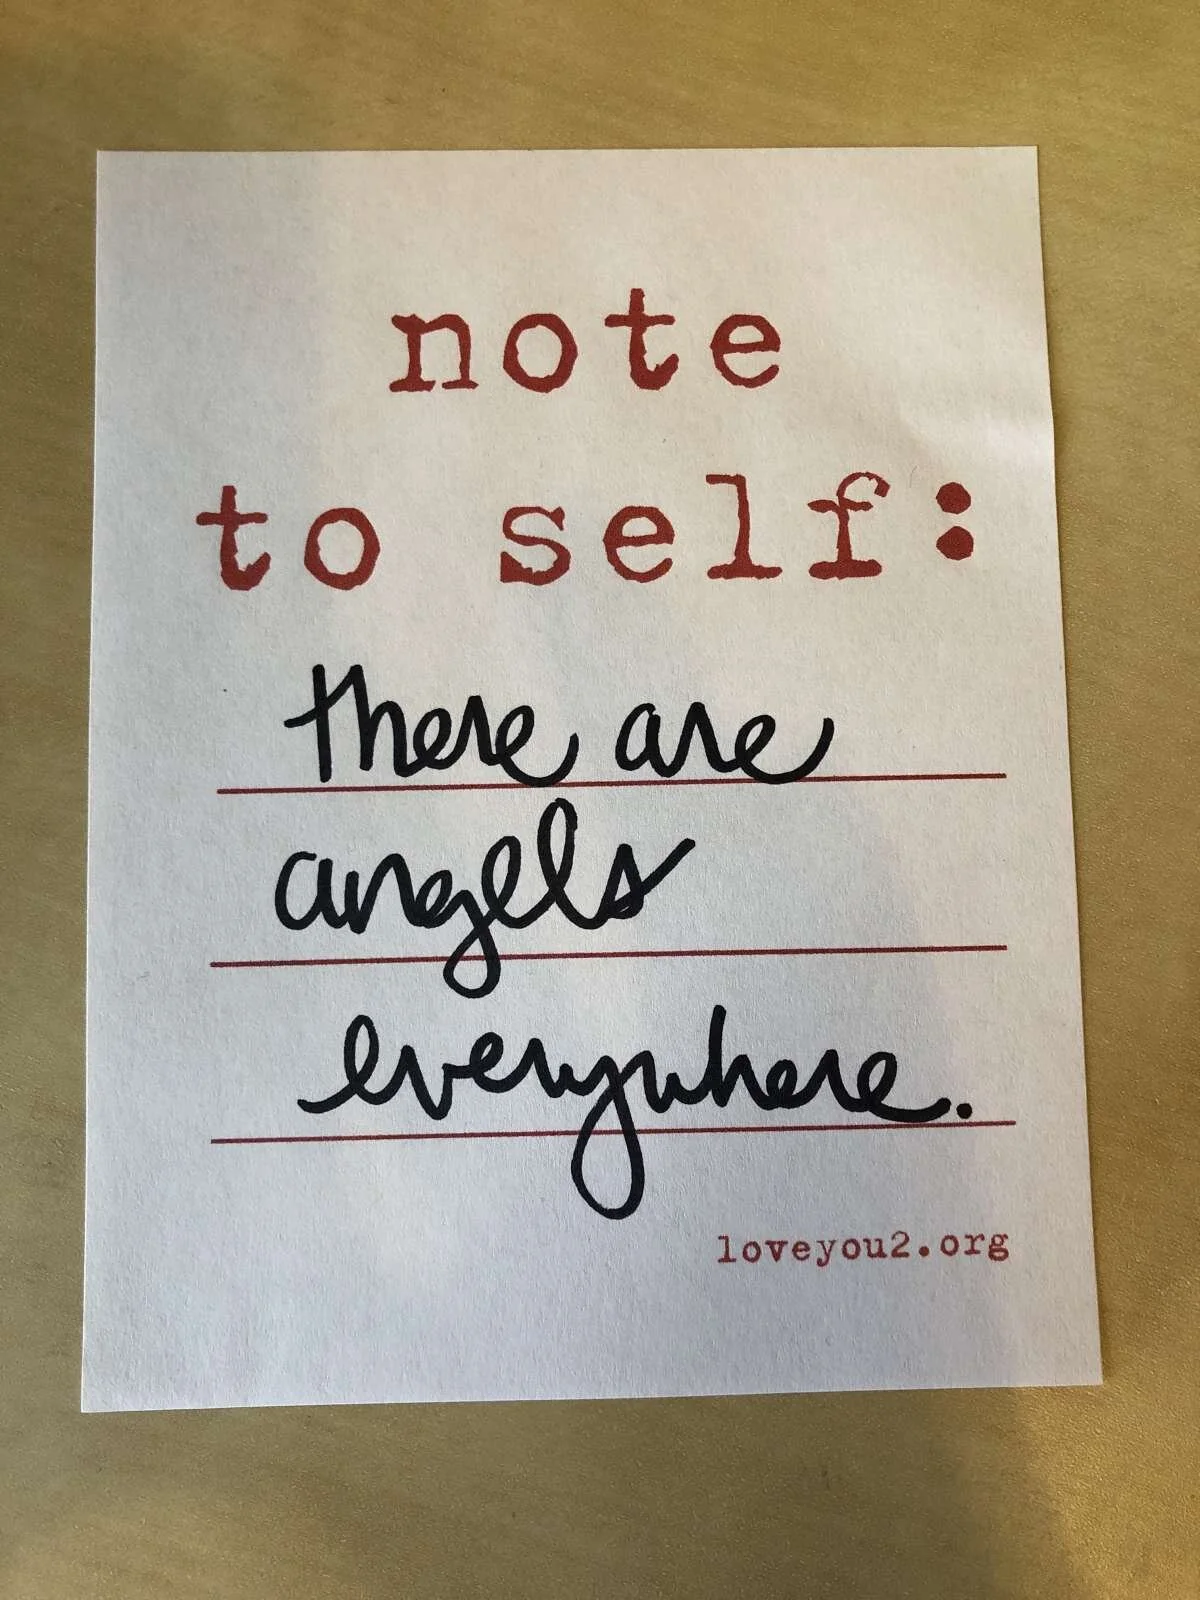 note
to self:
there are
angels
everywhere.
loveyou2.org